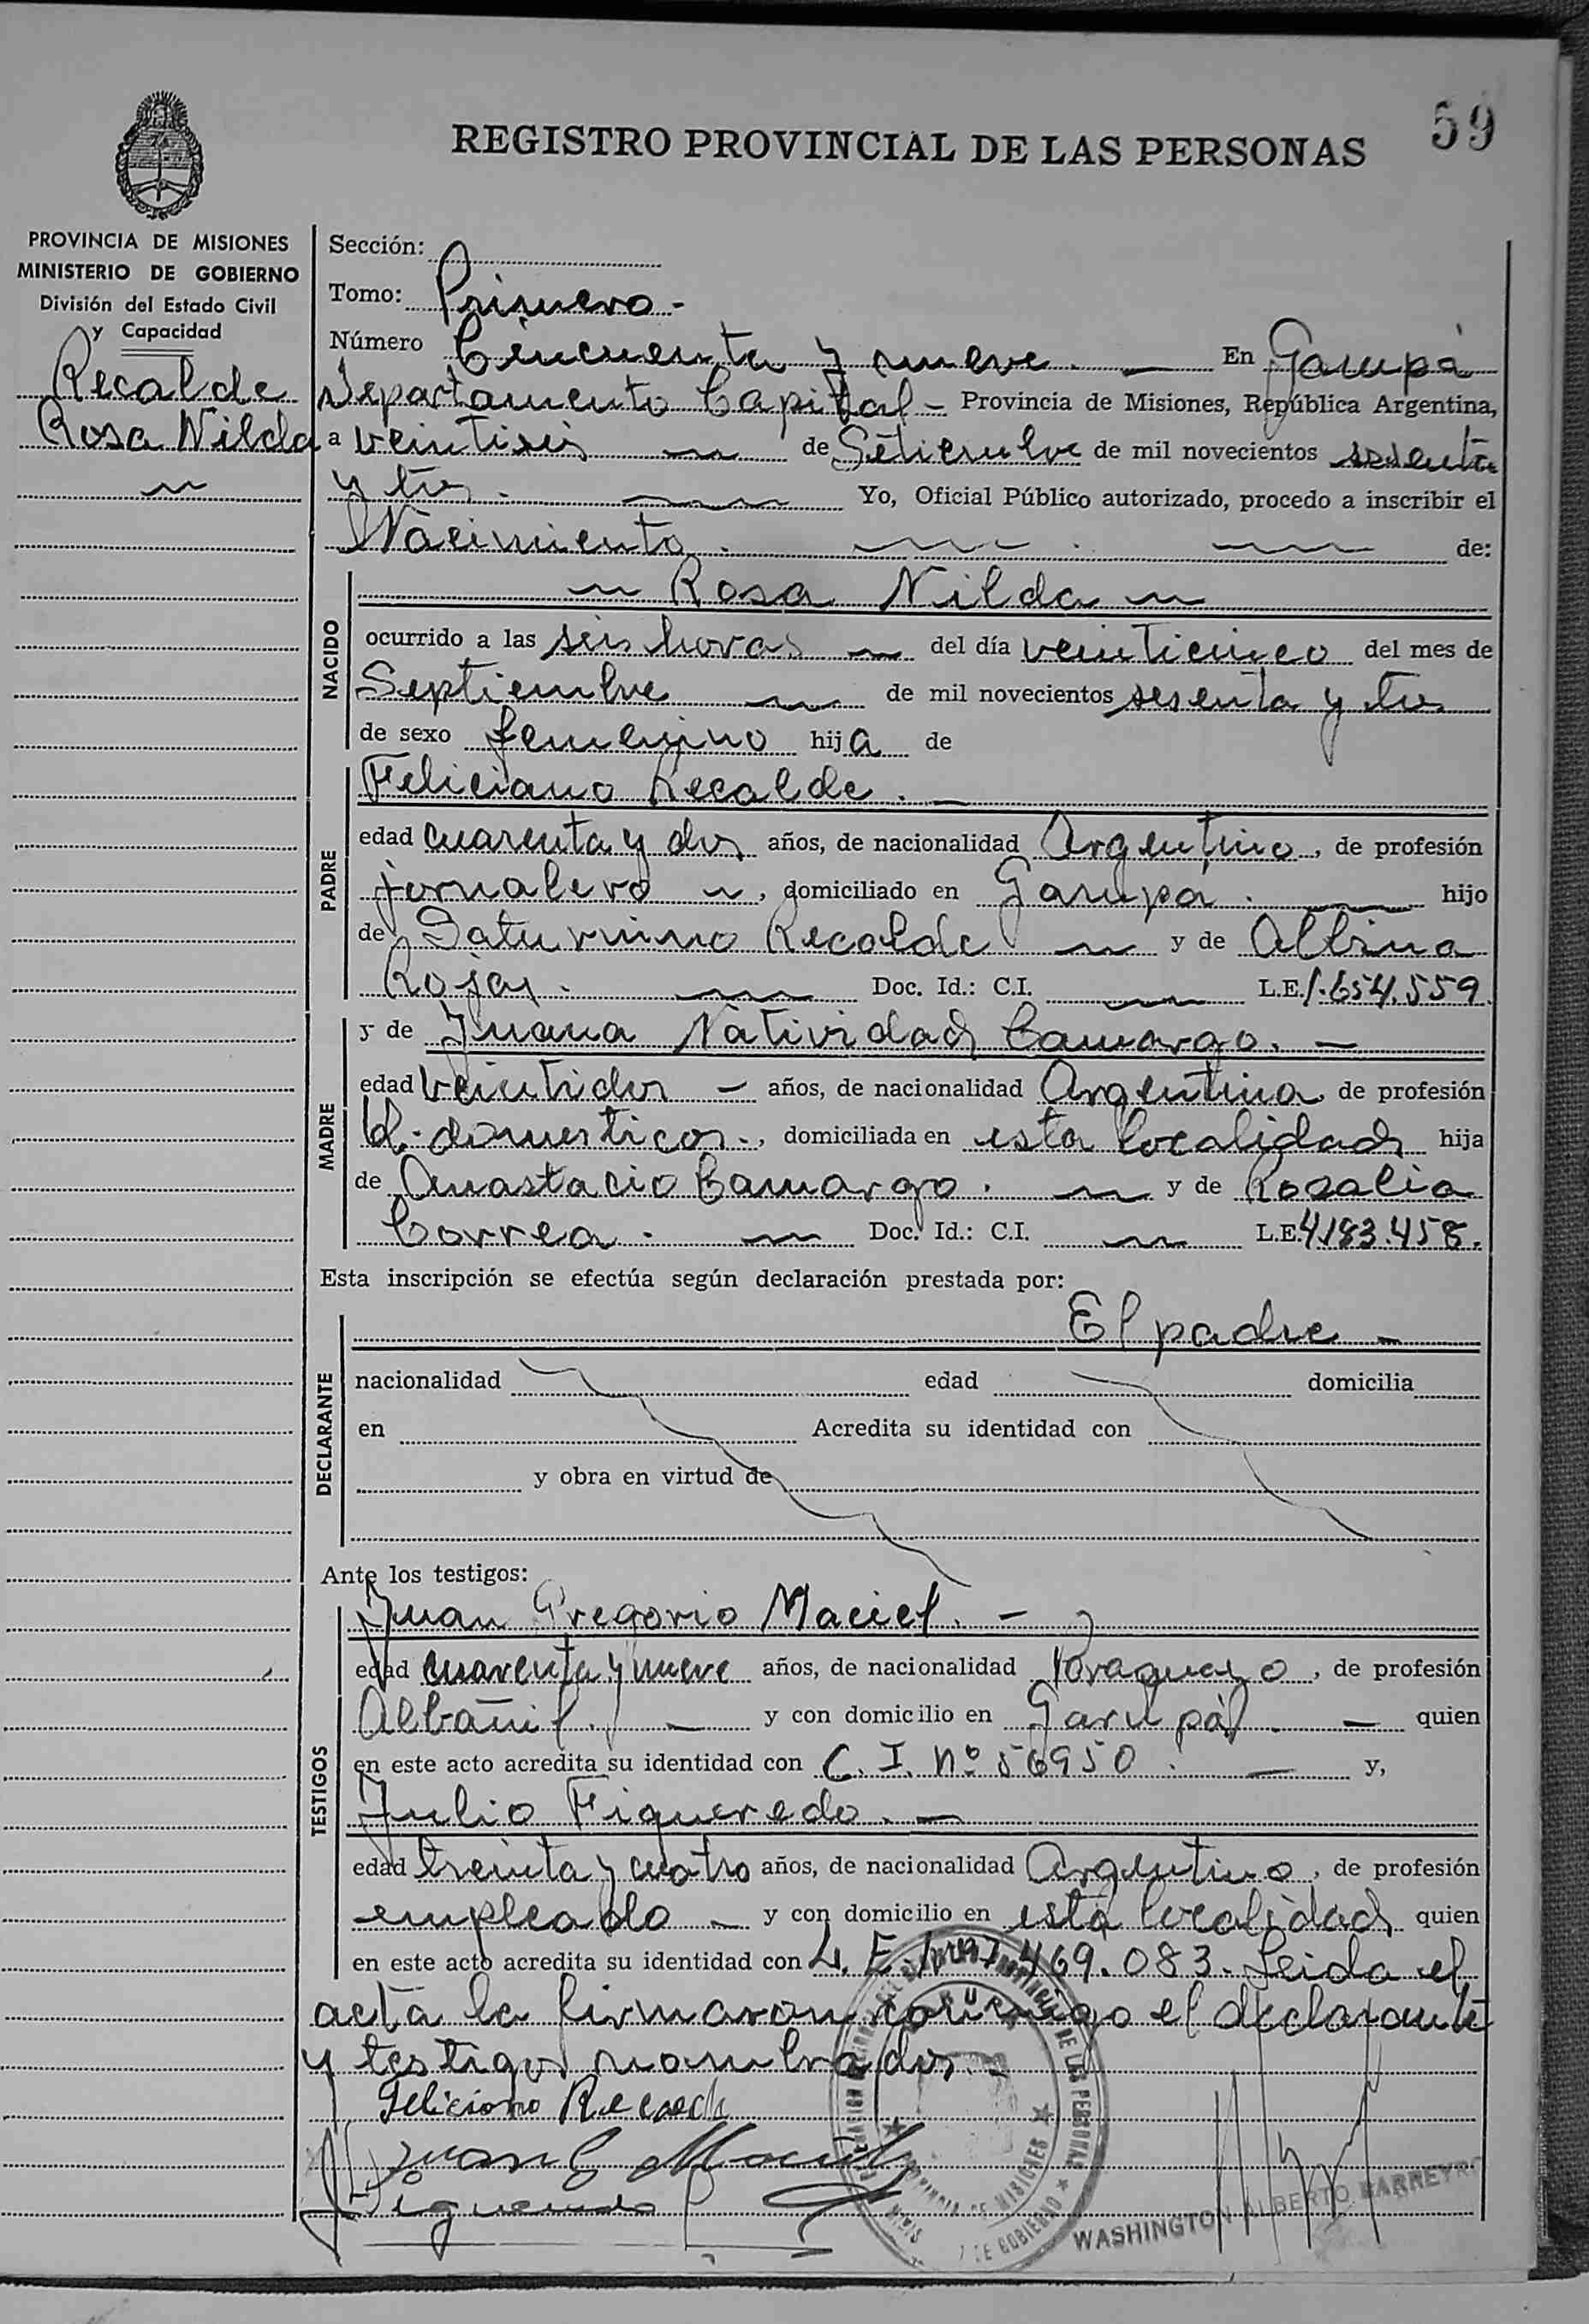 59
REGISTRO PROVINCIAL DE LAS PERSONAS
PROVINCIA DE MISIONES
MINISTERIO DE GOBIERNO
División del Estado Civil
y Capacidad
Recalde
Rosa Nilda
Sección:
Tomo: Primero -
Número Cincuenta y nueve. — En Garupá
Departamento Capital - Provincia de Misiones, República Argentina,
a veintiseis de Setiembre de mil novecientos sesenta
y tres. Yo, Oficial Público autorizado, procedo a inscribir el
Nacimiento. de:
NACIDO
Rosa Nilda
ocurrido a las seis horas del día veinticinco del mes de
Septiembre de mil novecientos sesenta y tres
de sexo femenino hija de
PADRE
Feliciano Recalde. —
edad cuarenta y dos años, de nacionalidad Argentino, de profesión
jornalero, domiciliado en Garupá. hijo
de Saturnino Recalde y de Albina
Rojas. Doc. Id.: C.I. L.E. 1.654.559.
MADRE
y de Juana Natividad Camargo. —
edad veintidos - años, de nacionalidad Argentina de profesión
Q. domesticos., domiciliada en esta localidad hija
de Anastacio Camargo. y de Rosalia
Correa. Doc. Id.: C.I. L.E. 4.183.458.
Esta inscripción se efectúa según declaración prestada por:
DECLARANTE
El padre —
nacionalidad edad domicilia
en Acredita su identidad con
y obra en virtud de
Ante los testigos:
TESTIGOS
Juan Gregorio Maciel. —
edad cuarenta y nueve años, de nacionalidad Paraguayo, de profesión
Albañil. — y con domicilio en Garupá. — quien
en este acto acredita su identidad con C. I. Nº 56950. — y,
Julio Figueredo. —
edad treinta y cuatro años, de nacionalidad Argentino, de profesión
empleado — y con domicilio en esta localidad quien
en este acto acredita su identidad con L. E. 469.083. Leida el
acta la firmaron conmigo el declarante
y testigos nombrados. —
Feliciano Recalde
Juan G Maciel
J Figueredo
DE LAS PERSONAS
PROVINCIA DE MISIONES
DE GOBIERNO
WASHINGTON ALBERTO BARREYRO